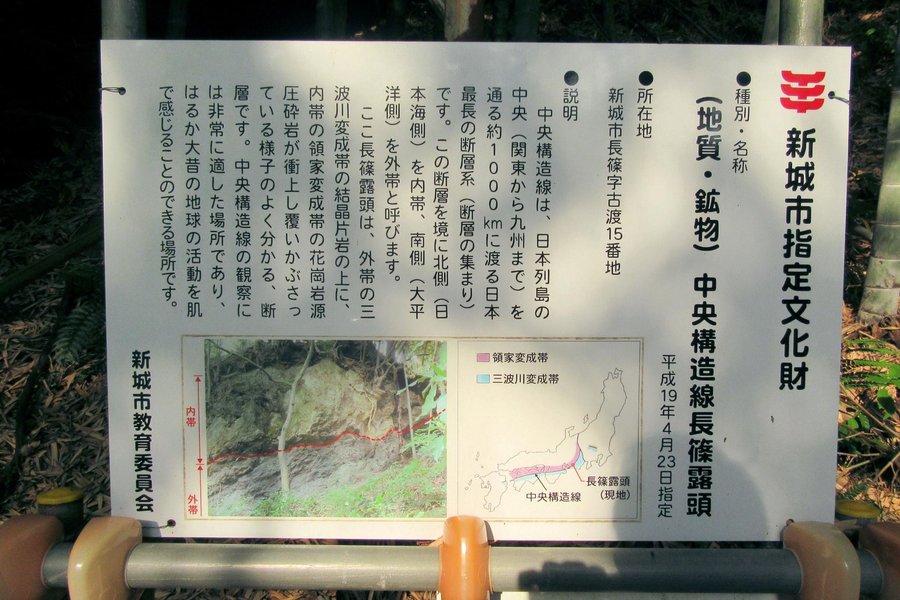 新城市指定文化財
●種別・名称
（地質・鉱物） 中央構造線長篠露頭
平成19年4月23日指定
●所在地
新城市長篠字古渡15番地
●説明
中央構造線は、日本列島の
中央（関東から九州まで）を
通る約1000kmに渡る日本
最長の断層系（断層の集まり）
です。この断層を境に北側（日
本海側）を内帯、南側（太平
洋側）を外帯と呼びます。
ここ長篠露頭は、外帯の三
波川変成帯の結晶片岩の上に、
内帯の領家変成帯の花崗岩源
圧砕岩が衝上し覆いかぶさっ
ている様子のよく分かる、断
層です。中央構造線の観察に
は非常に適した場所であり、
はるか大昔の地球の活動を肌
で感じることのできる場所です。
領家変成帯
三波川変成帯
長篠露頭
（現地）
中央構造線
内帯
外帯
新城市教育委員会